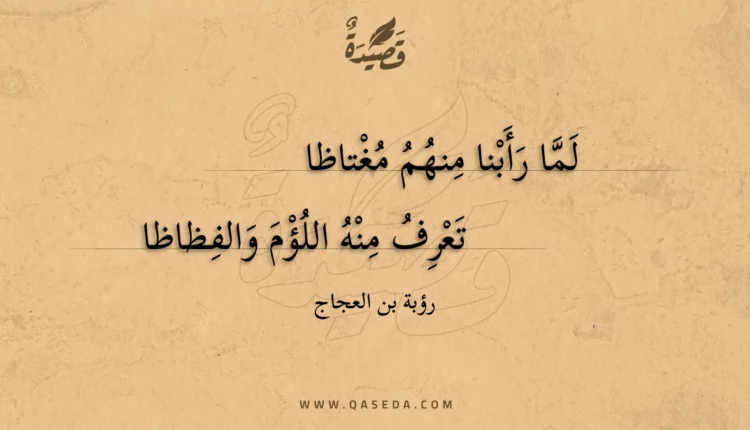 قَصِيْدَةٌ
لَمَّا رَأَبْنا مِنهُمُ مُغْتاظا
تَعْرِفُ مِنْهُ اللُؤْمَ وَالفِظاظا
رؤبة بن العجاج
WWW.QASEDA.COM